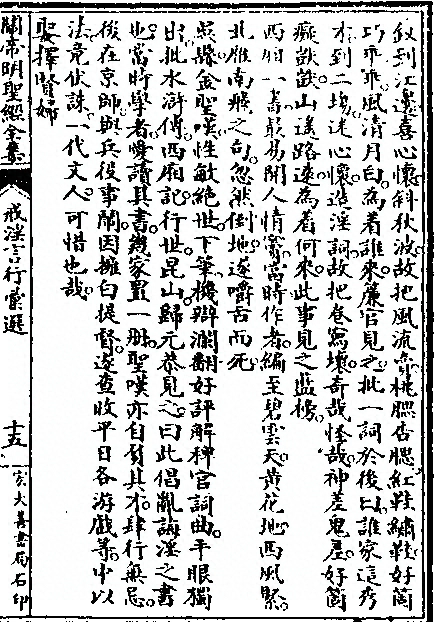 釵到江邊喜心懷斜狄波故把風流賣桃腮杏腮紅鞋繡鞋好箇
巧乖乖風清月白為着誰來簾官見之批一詞於後曰誰家這秀
才到二場迷心懷造淫詞故把卷寫壞奇哉怪哉神差鬼差好箇
癡獃獃山遙路遠為着何來此事見之監榜
西廂一書最易開人情竇當時作者編至碧雲天黃花地西風緊
北雁南飛之句忽然倒地遂嚼舌而死
吳縣金聖嘆性敏絕世下筆機辯瀾翻好評解稗官詞曲平眼獨
出批水滸傳西廂記行世昆山歸元恭見之曰此倡亂誨淫之書
也當時學者愛讀其書幾家置一冊聖嘆亦自負其才肆行無忌
後在京師與兵役事鬧因擁白提督遂查收平日各游戲等中以
法竟伏誅一代文人可惜也哉
娶擇賢婦
關帝明聖經全集
戒淫言行彙選
十五
宏大善書局石印